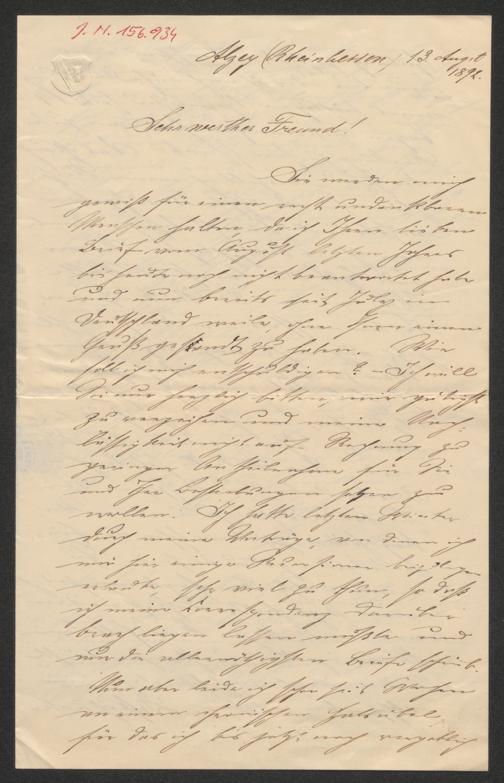 J. N. 156.934
Alzey (Rheinhessen) 13. August
1892.
Sehr werther Freund!
Sie werden mich
gewiß für einen recht undankbaren
Menschen halten, da ich Ihren lieben
Brief vom August letzten Jahres
bis heute noch nicht beantwortet habe
und nun bereits seit July in
Deutschland weile, ohne Ihnen einen
Gruß gesandt zu haben. Wie
soll ich mich entschuldigen? – Ich will
Sie nur herzlich bitten, mir gütigst
zu verzeihen und meine Nach-
lässigkeit nicht auf Rechnung zu
geringer Antheilnahme für Sie
und Ihre Bestrebungen setzen zu
wollen. Ich hatte letzten Winter
durch meine Vorträge, von denen ich
mir hier einige Recensionen beizulegen
erlaube, sehr viel zu thun, so daß
ich meine Correspondenz darüber
brach liegen lassen mußte und
nur die allernöthigsten Briefe schrieb.
Nun aber leide ich schon seit Wochen
an einem chronischen Halsübel,
für das ich bis jetzt noch vergeblich